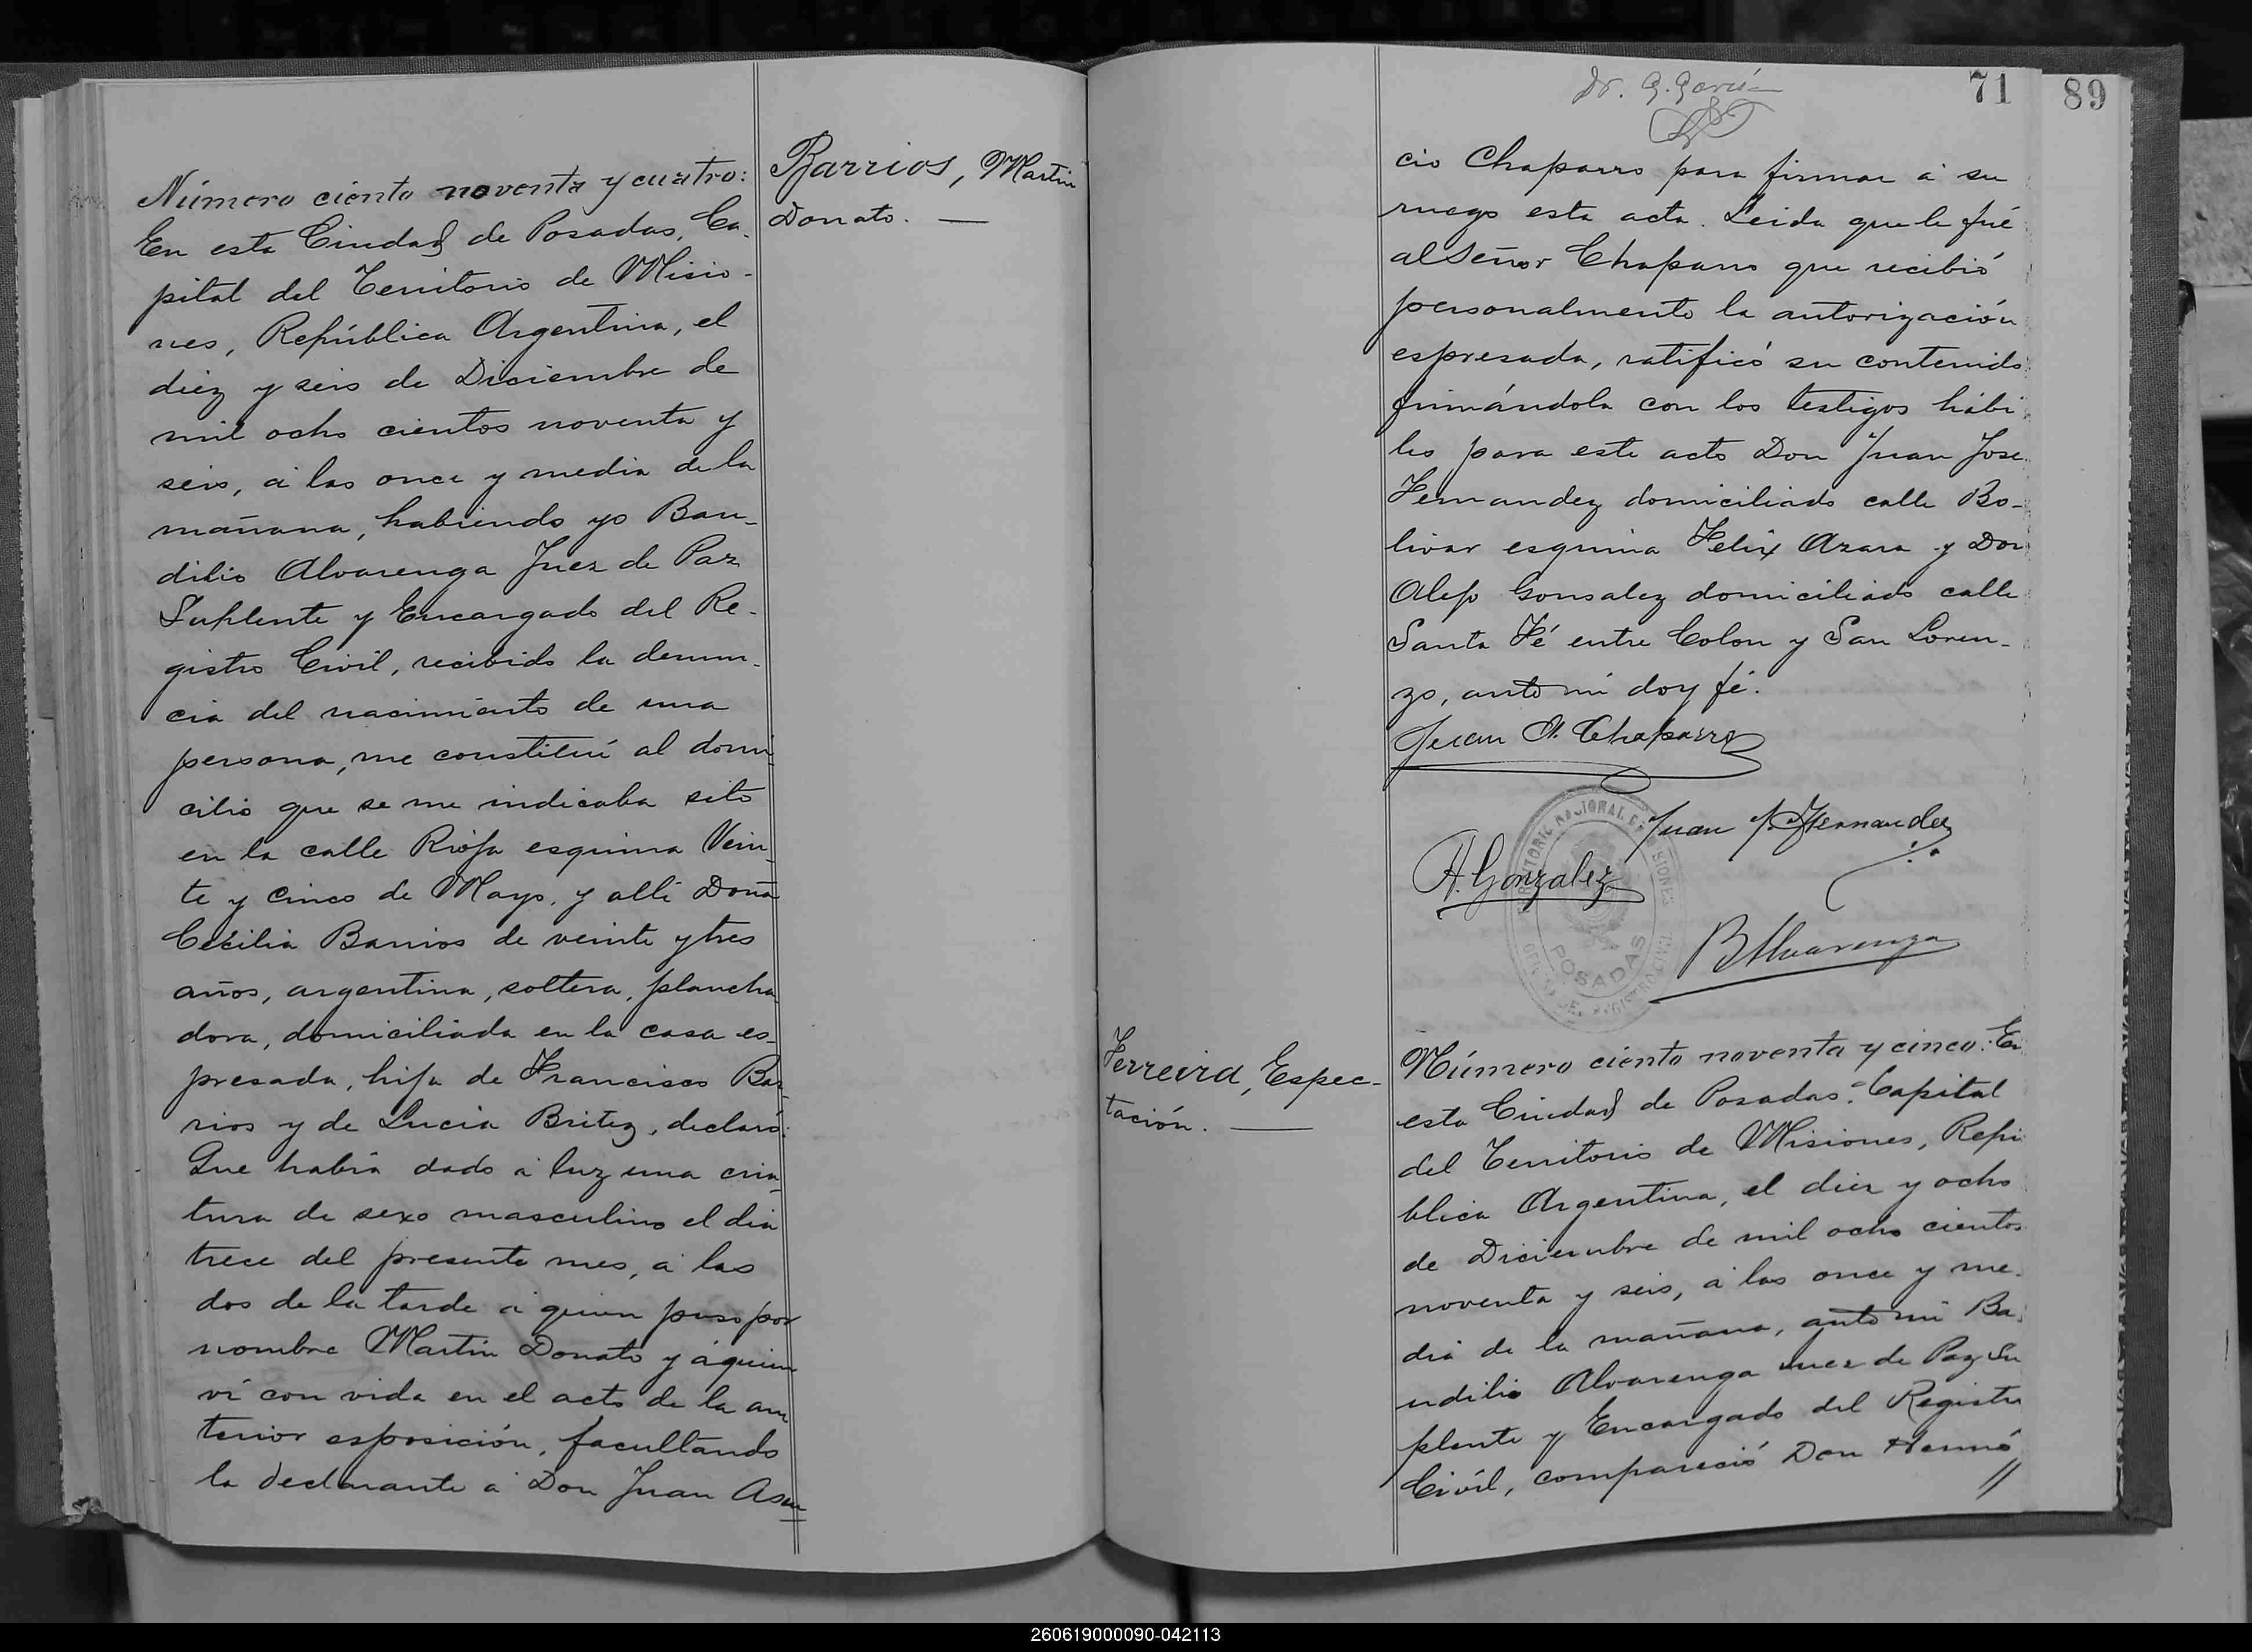 Barrios, Martin
Donato. —
Número ciento noventa y cuatro:
En esta Ciudad de Posadas, Ca-
pital del Territorio de Misio-
nes, República Argentina, el
diez y seis de Diciembre de
mil ocho cientos noventa y
seis, á las once y media de la
mañana, habiendo yo Bau-
dilio Alvarenga Juez de Paz
Suplente y Encargado del Re-
gistro Civil, recibido la denun-
cia del nacimiento de una
persona, me constituí al domi
cilio que se me indicaba sito
en la calle Rioja esquina Vein-
te y cinco de Mayo, y allí Doña
Cecilia Barrios de veinte y tres
años, argentina, soltera, plancha
dora, domiciliada en la casa es-
presada, hija de Francisco Bar
rios y de Lucia Britez, declaró:
Que habia dado á luz una cria-
tura de sexo masculino el dia
trece del presente mes, á las
dos de la tarde á quien puso por
nombre Martin Donato y á quien
ví con vida en el acto de la an
terior esposición, facultando
la declarante á Don Juan Asen
Dr. G. Garcia
71
89
cio Chaparro para firmar á su
ruego esta acta. Leida que le fué
al Señor Chaparro que recibió
personalmente la autorización
espresada, ratificó su contenido
firmándola con los testigos hábi
les para este acto Don Juan José
Fernandez domiciliado calle Bo-
livar esquina Felix Azara y Don
Alejo Gonsalez domiciliado calle
Santa Fé entre Colon y San Loren-
zo, ante mí doy fé.
Juan A. Chaparro
Juan J. Fernandez
A. Gonzalez
TERRITORIO NACIONAL DE MISIONES
POSADAS
OFICINA DE REGISTRO CIVIL
B Alvarenga
Ferreira, Espec-
tación. —
Número ciento noventa y cinco: En
esta Ciudad de Posadas, Capital
del Territorio de Misiones, Repú
blica Argentina, el diez y ocho
de Diciembre de mil ocho cientos
noventa y seis, á las once y me-
dia de la mañana, ante mí Ba
udilio Alvarenga Juez de Paz Su
plente y Encargado del Registro
Civil, compareció Don Hermó
//
260619000090-042113